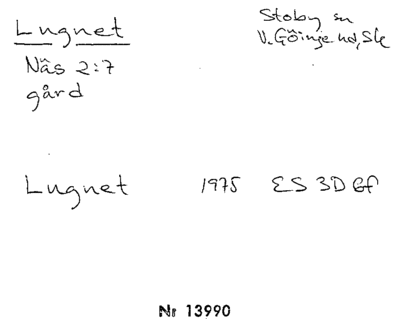 Lugnet
Stoby sn
V. Göinge hd, Sk
Näs 2:7
gård
Lugnet 1975 ES 3D Gf
Nr 13990